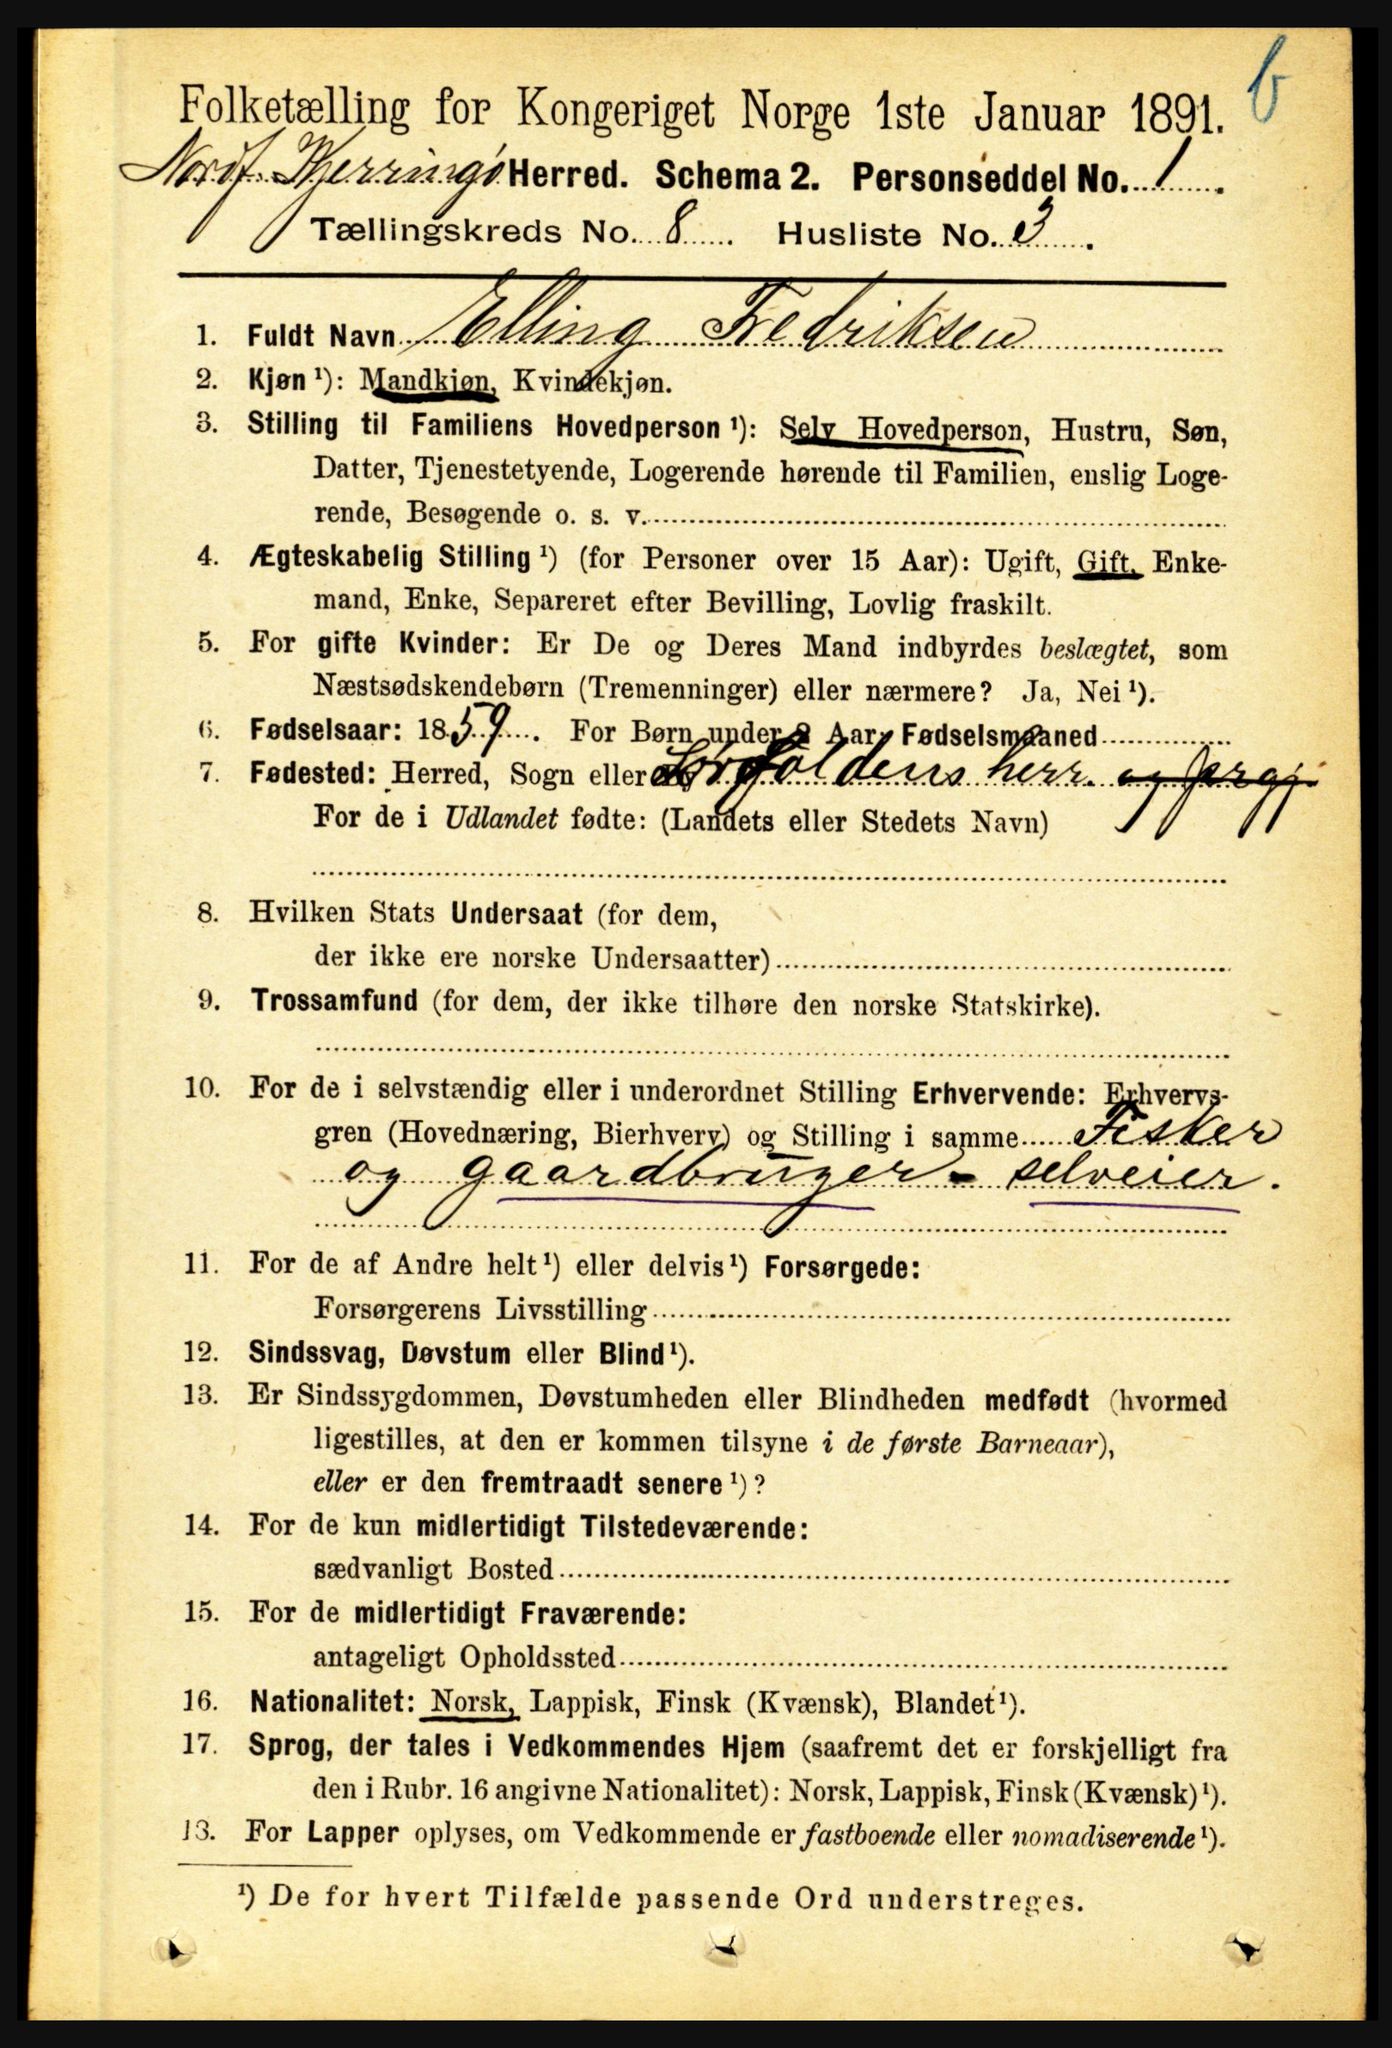 b
Folketælling for Kongeriget Norge 1ste Januar 1891.
Nordf. Kjerringø Herred. Schema 2. Personseddel No. 1.
Tællingskreds No. 8. Husliste No. 3.
1. Fuldt Navn Elling Fredriksen
2. Kjøn¹): Mandkjøn, Kvindekjøn.
3. Stilling til Familiens Hovedperson¹): Selv Hovedperson, Hustru, Søn,
Datter, Tjenestetyende, Logerende hørende til Familien, enslig Loge-
rende, Besøgende o. s. v.
4. Ægteskabelig Stilling¹) (for Personer over 15 Aar): Ugift, Gift, Enke-
mand, Enke, Separeret efter Bevilling, Lovlig fraskilt.
5. For gifte Kvinder: Er De og Deres Mand indbyrdes beslægtet, som
Næstsødskendebørn (Tremenninger) eller nærmere? Ja, Nei¹).
6. Fødselsaar: 1859. For Børn under 2 Aar: Fødselsmaaned
7. Fødested: Herred, Sogn eller Sørfoldens herr. og prgj.
For de i Udlandet fødte: (Landets eller Stedets Navn)
8. Hvilken Stats Undersaat (for dem,
der ikke ere norske Undersaatter)
9. Trossamfund (for dem, der ikke tilhøre den norske Statskirke).
10. For de i selvstændig eller i underordnet Stilling Erhvervende: Erhvervs-
gren (Hovednæring, Bierhverv) og Stilling i samme Fisker
og gaardbruger - selveier.
11. For de af Andre helt¹) eller delvis¹) Forsørgede:
Forsørgerens Livsstilling
12. Sindssvag, Døvstum eller Blind¹).
13. Er Sindssygdommen, Døvstumheden eller Blindheden medfødt (hvormed
ligestilles, at den er kommen tilsyne i de første Barneaar),
eller er den fremtraadt senere¹)?
14. For de kun midlertidigt Tilstedeværende:
sædvanligt Bosted
15. For de midlertidigt Fraværende:
antageligt Opholdssted
16. Nationalitet: Norsk, Lappisk, Finsk (Kvænsk), Blandet¹).
17. Sprog, der tales i Vedkommendes Hjem (saafremt det er forskjelligt fra
den i Rubr. 16 angivne Nationalitet): Norsk, Lappisk, Finsk (Kvænsk)¹).
13. For Lapper oplyses, om Vedkommende er fastboende eller nomadiserende¹).
¹) De for hvert Tilfælde passende Ord understreges.